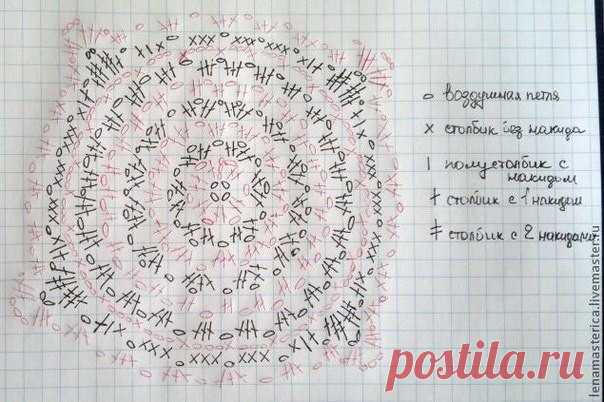 о воздушная петля
х столбик без накида
ı полустолбик с
накидом
† столбик с 1 накидом
ǂ столбик с 2 накидами
lenamasterica.livemaster.ru
postila.ru